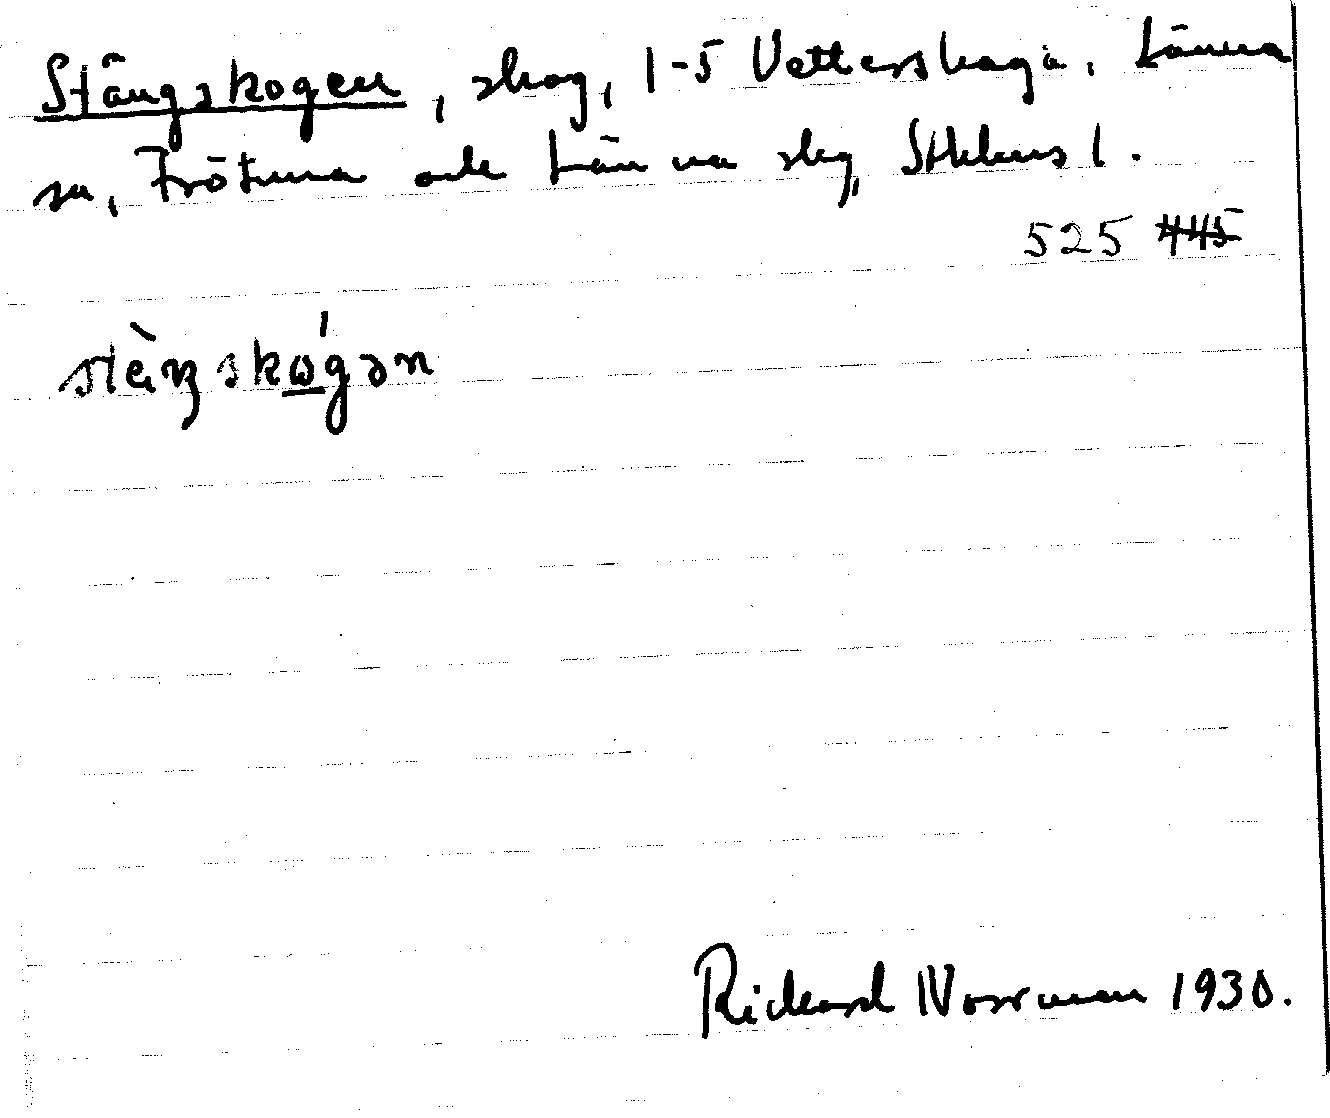 Stängskogen, skog, 1-5 Vettershaga, Länna
sn, Frötuna och Länna skg, Sthlms l.
525 445
stèŋskógən
Rickard Norrman 1930.